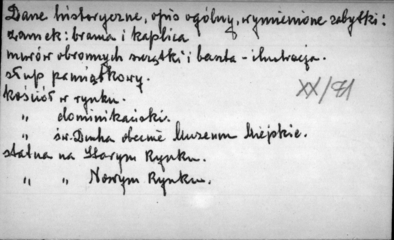 Dane historyczne, opis ogólny, wymienione zabytki:
zamek: brama i kaplica
murów obronnych resztki i baszta - ilustracja.
słup pamiątkowy.
kościół w rynku.
XX/71
" dominikański.
" św. Ducha obecnie Muzeum Miejskie.
statua na Starym Rynku.
" " Nowym Rynku.